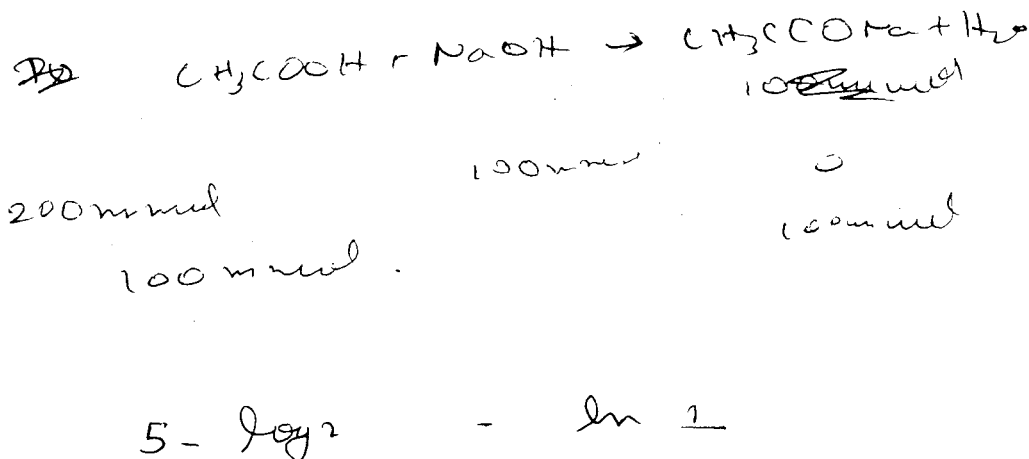 CH3COOH + NaOH → CH3CCONa + H2O
100mmol
200mmol 100mmol 0
100mmol. 100mmol
5 - log2 - ln 1